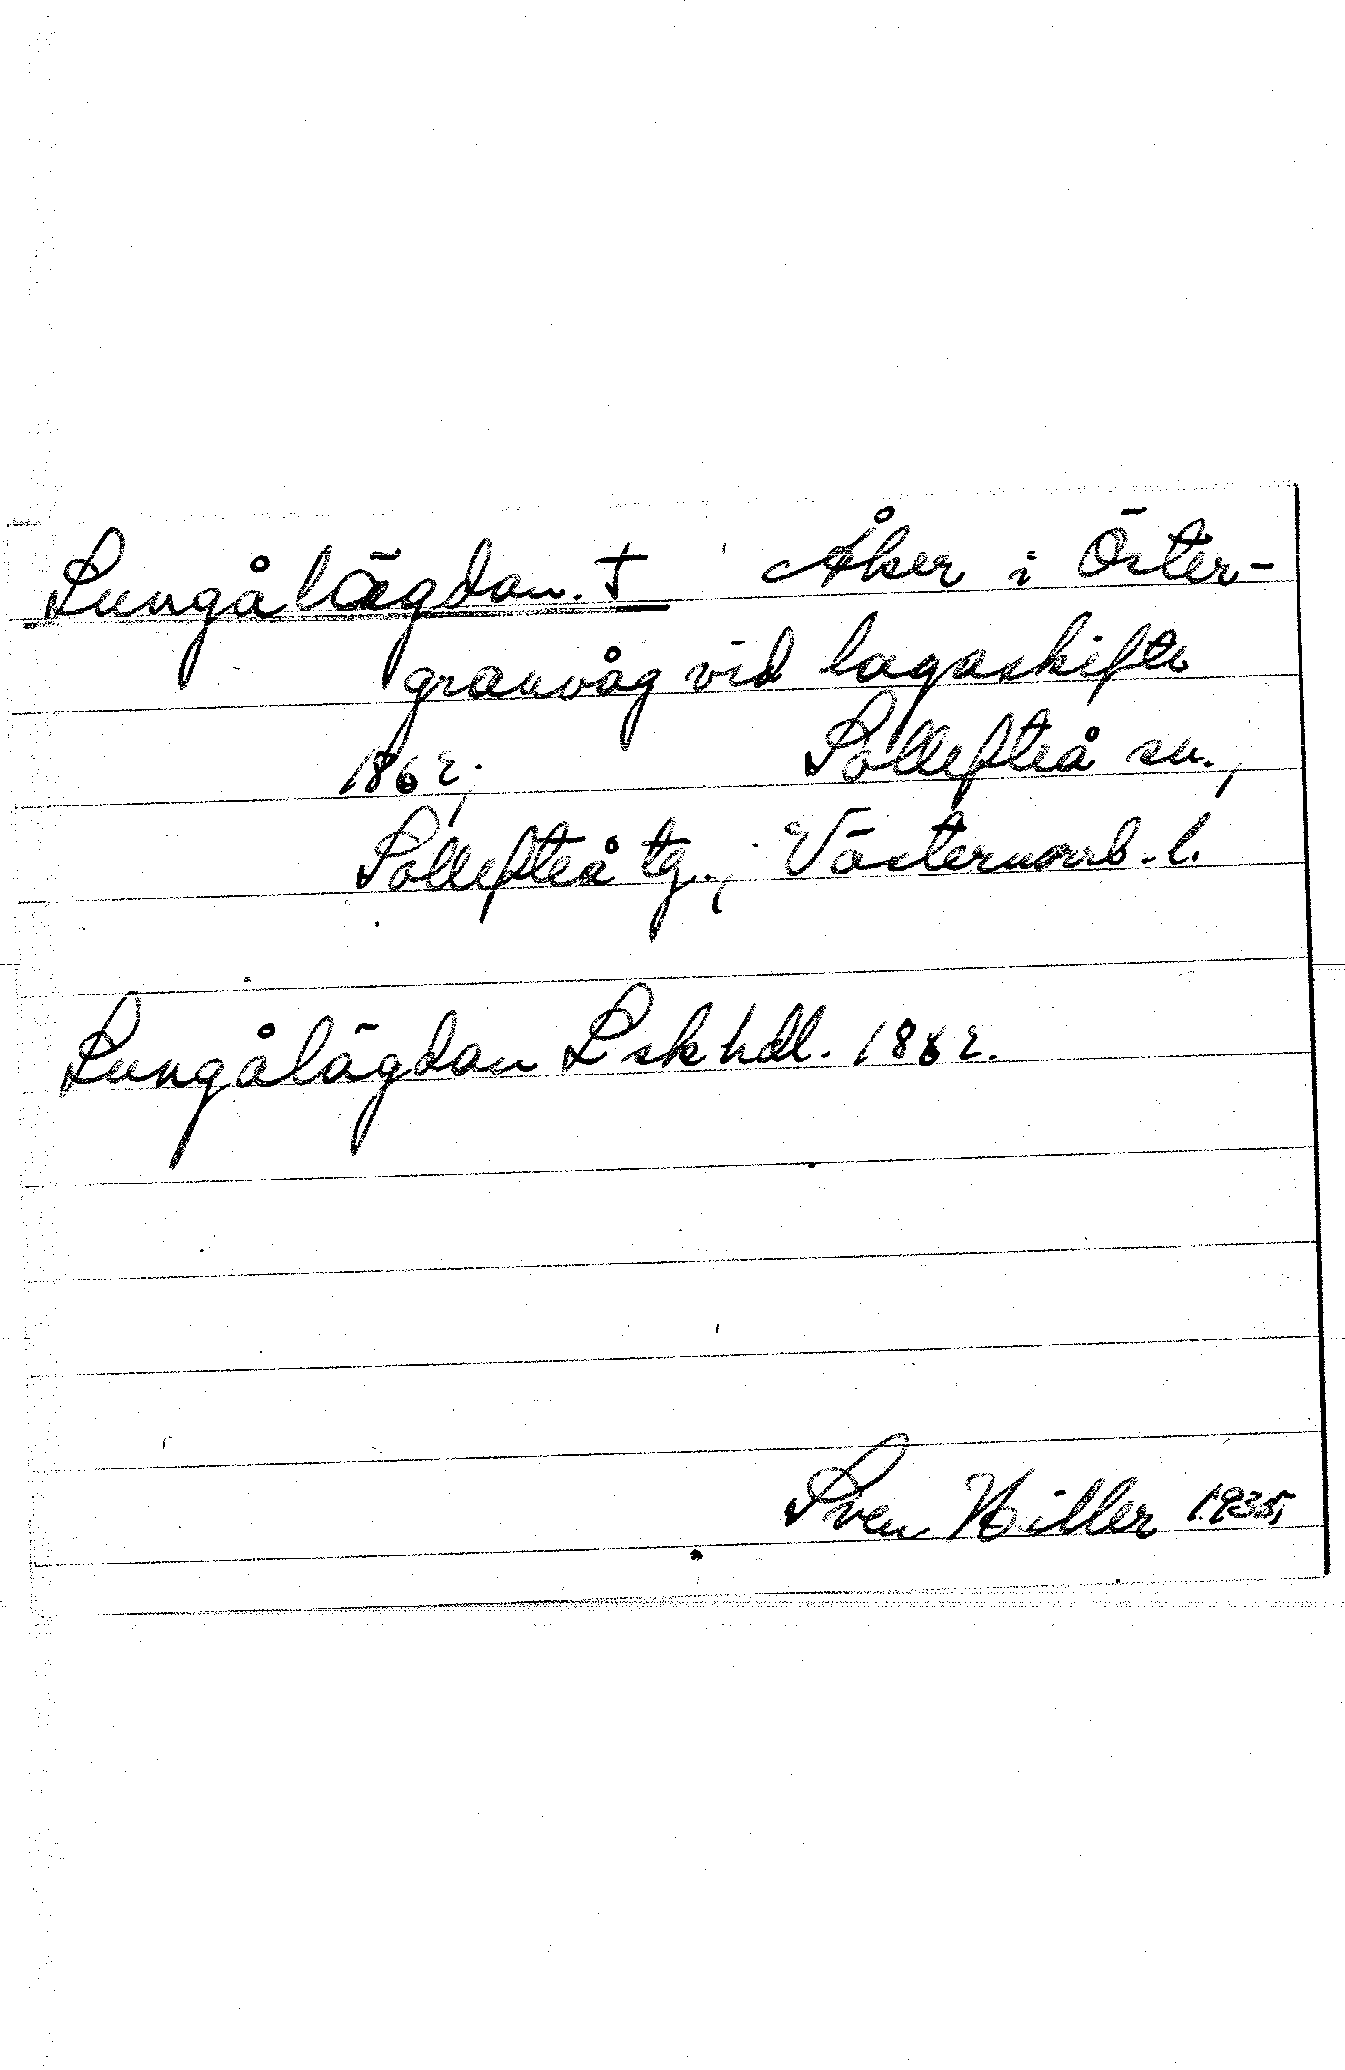 Lungålägdan. † Åker i Öster-
granvåg vid lagaskifte
1862; Sollefteå sn.,
Sollefteå tg., Västernorrl. l.
Lungålägdan Lskhdl. 1862.
Sven Hiller 1935.